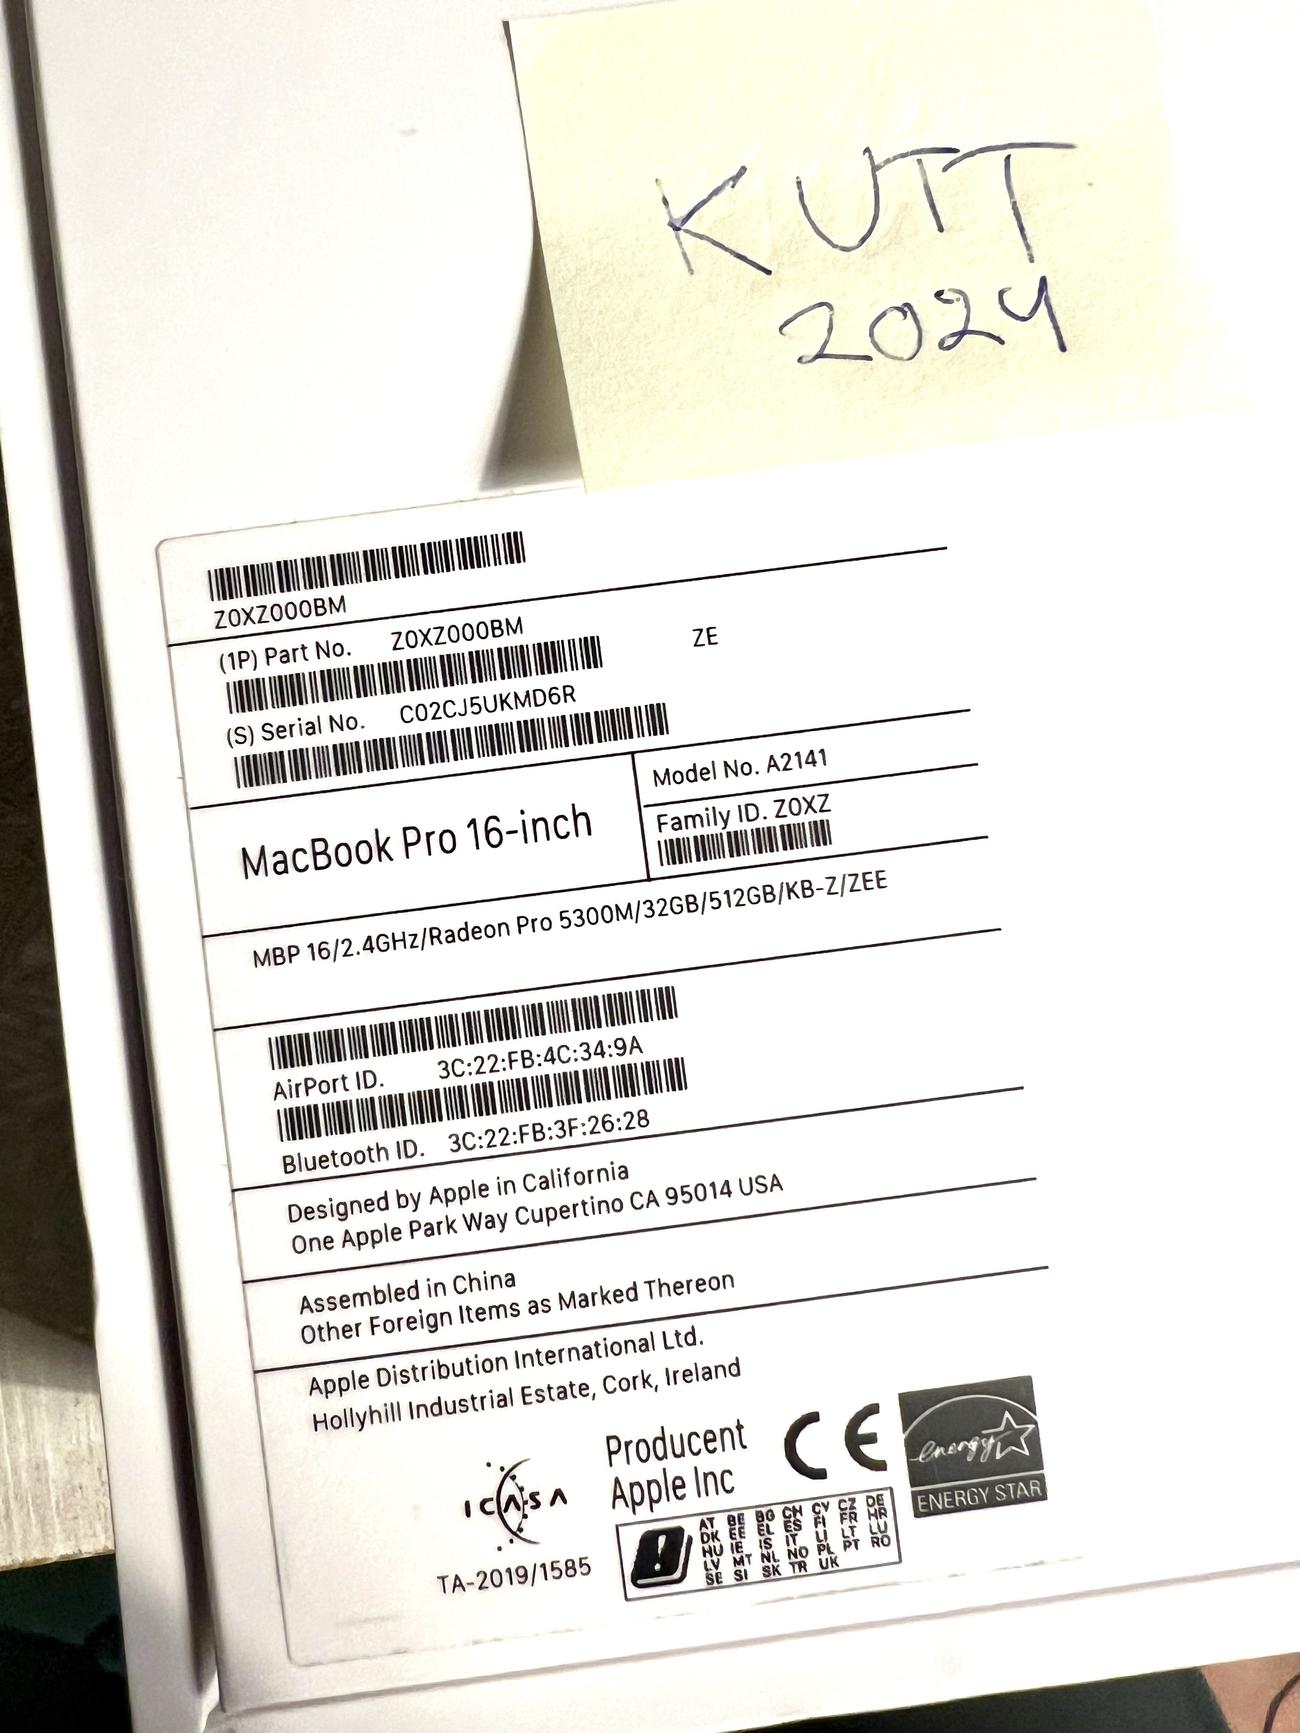 KUTT
2024
Z0XZ000BM
(1P) Part No. Z0XZ000BM ZE
(S) Serial No. C02CJ5UKMD6R
MacBook Pro 16-inch
Model No. A2141
Family ID. Z0XZ
MBP 16/2.4GHz/Radeon Pro 5300M/32GB/512GB/KB-Z/ZEE
AirPort ID. 3C:22:FB:4C:34:9A
Bluetooth ID. 3C:22:FB:3F:26:28
Designed by Apple in California
One Apple Park Way Cupertino CA 95014 USA
Assembled in China
Other Foreign Items as Marked Thereon
Apple Distribution International Ltd.
Hollyhill Industrial Estate, Cork, Ireland
ICASA
TA-2019/1585
Producent
Apple Inc
CE
energy
ENERGY STAR
AT BE BG CH CY CZ DE
DK EE EL ES FI FR HR
HU IE IS IT LI LT LU
LV MT NL NO PL PT RO
SE SI SK TR UK